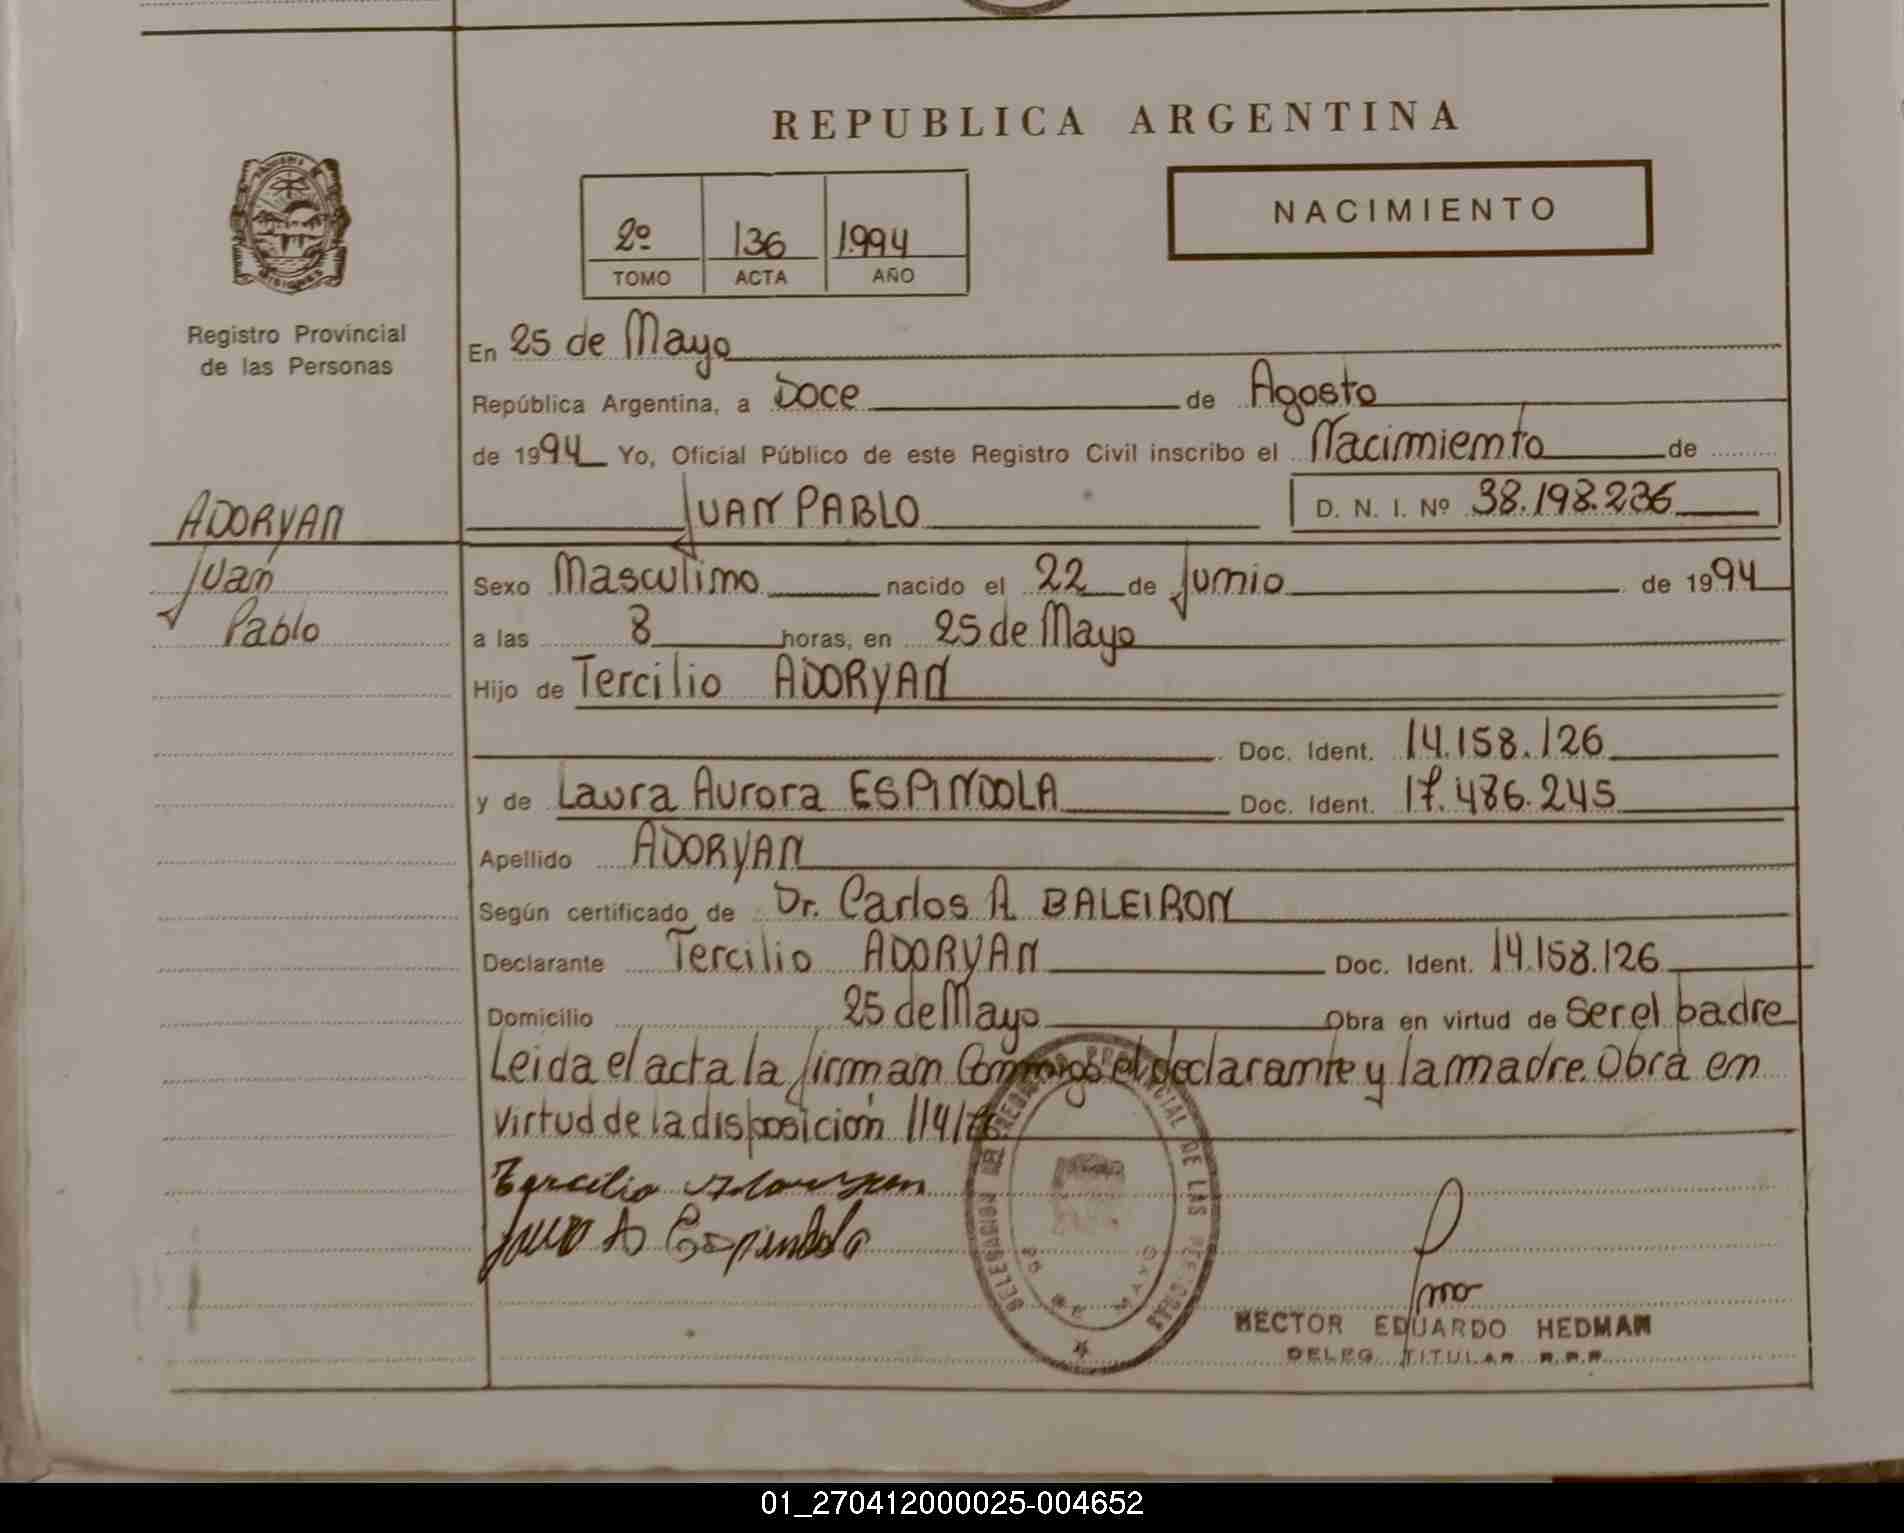 REPUBLICA ARGENTINA
NACIMIENTO
2º 136 1994
TOMO ACTA AÑO
Registro Provincial
de las Personas
En 25 de Mayo
República Argentina, a Doce de Agosto
de 1994 Yo, Oficial Público de este Registro Civil inscribo el Nacimiento de
JUAN PABLO D. N. I. Nº 38.198.236
ADORYAN
Juan
Pablo
Sexo Masculino nacido el 22 de Junio de 1994
a las 8 horas, en 25 de Mayo
Hijo de Tercilio ADORYAN
Doc. Ident. 14.158.126
y de Laura Aurora ESPINDOLA Doc. Ident. 17.486.245
Apellido ADORYAN
Según certificado de Dr. Carlos A BALEIRON
Declarante Tercilio ADORYAN Doc. Ident. 14.158.126
Domicilio 25 de Mayo Obra en virtud de Ser el padre
Leida el acta la firman Conmigo el declarante y la madre. Obra en
virtud de la disposición
Tercilio Adoryan
Laura A Espindola
DELEGACION DEL REGISTRO PROVINCIAL DE LAS PERSONAS
25 DE MAYO
HECTOR EDUARDO HEDMAN
DELEG. TITULAR R.P.P.
01_270412000025-004652